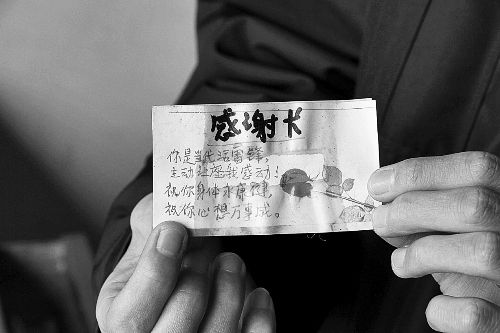 感谢卡
你是当代活雷锋,
主动让座我感动!
祝你身体永康健
祝你心想万事成。